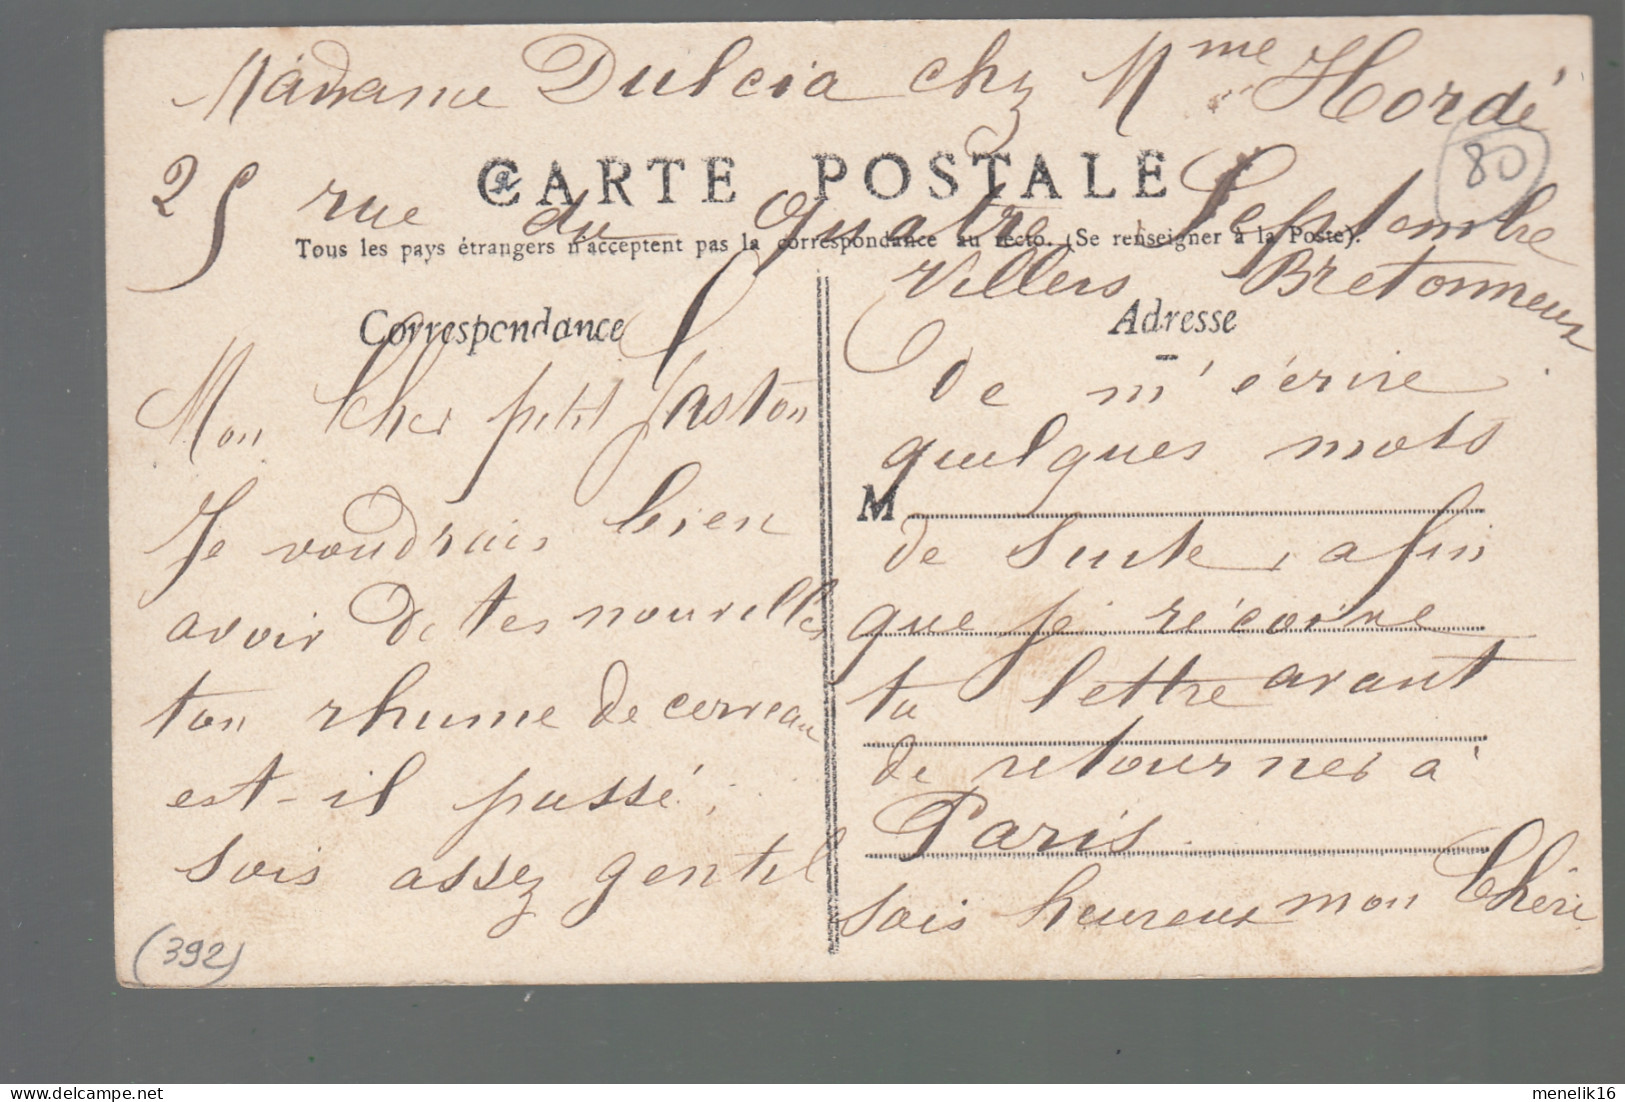 Madame Dulcia chz Mme Hordé
80
CARTE POSTALE
25 rue du Quatre Septembre
Tous les pays étrangers n'acceptent pas la correspondance au recto. (Se renseigner à la Poste).
Villers Bretonneux
Correspondance
Adresse
Mon Cher petit Gaston
Je voudrais bien
avoir de tes nouvelles
ton rhume de cerveau
est-il passé;
sois assez gentil
de m'écrire
quelques mots
M
de suite, afin
que je récoive
ta lettre avant
de retourner à
Paris.
sois heureux mon Chéri
(392)
delcampe.net
menelik16